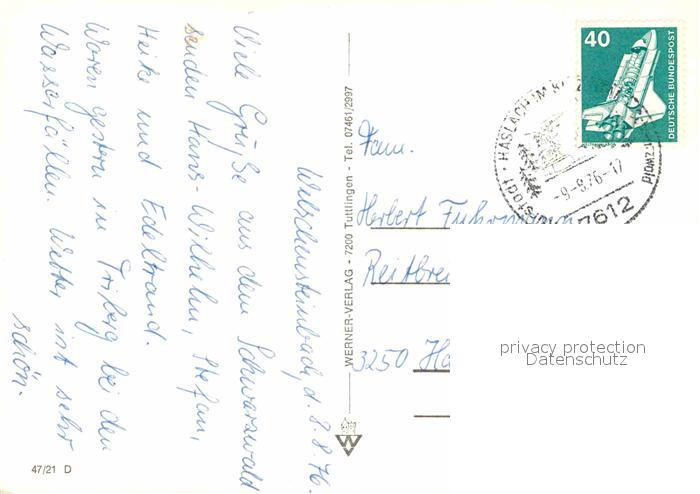 Welschensteinach, d. 8.8.76.
Viele Grüße aus dem Schwarzwald
senden Hans-Wilhelm, Stefan,
Heike und Edeltraud.
Waren gestern in Triberg bei den
Wasserfällen. Wetter ist sehr
schön.
47/21 D
WERNER-VERLAG - 7200 Tuttlingen - Tel. 07461/2997
W
40
DEUTSCHE BUNDESPOST
HASLACH IM
-9.-8.76-17
7612
Fam.
Herbert Fuhrmann
Reitbre
3250 Ha
privacy protection
Datenschutz